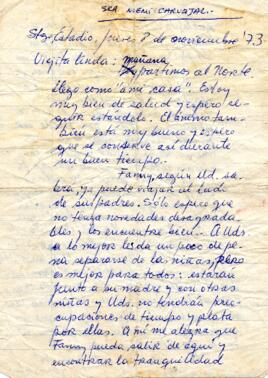 SRA NIEMI CARVAJAL.
Stgo, Estadio, jueves 8 de noviembre '73.-
Viejita linda: mañana
partimos al Norte.
Llego como "a mi casa". Estoy
muy bien de salud y espero se-
guir estándolo. El ánimo tam-
bién está muy bueno y espero
que se conserve así durante
un buen tiempo.
Fanny, según Ud. sa-
brá, ya puede viajar al lado
de sus padres. Sólo espero que
no tenga novedades desagrada-
bles y los encuentre bien. A Uds.
a lo mejor les da un poco de pena
separarse de las niñas, pero
es mejor para todos: estarán
junto a su madre y con otras
niñas y Uds. no tendrían preo-
cupaciones de tiempo y plata
por ellas. A mí me alegra que
Fanny pueda salir de aquí y
encontrar la tranquilidad